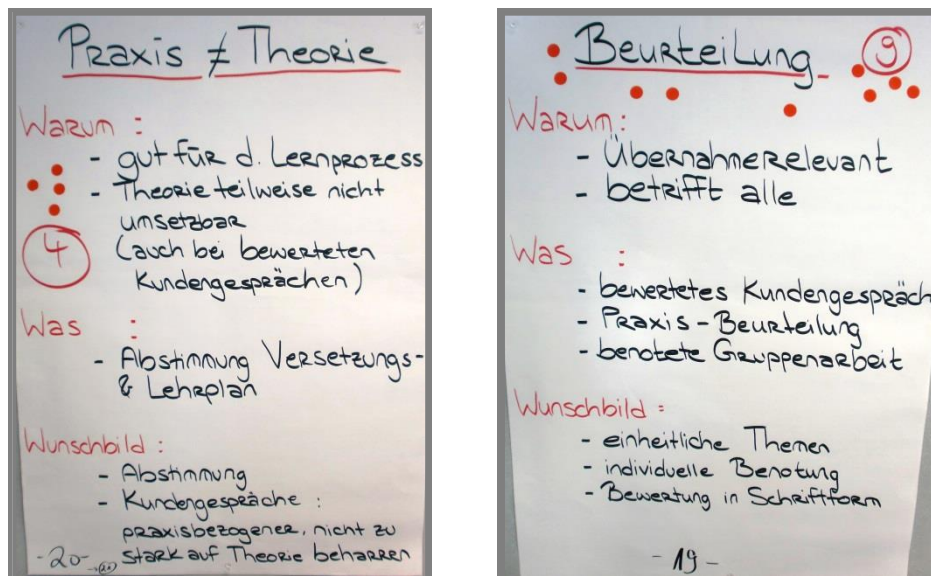 Praxis ≠ Theorie
Warum :
- gut für d. Lernprozess
- Theorie teilweise nicht
umsetzbar
(auch bei bewerteten
Kundengesprächen)
4
Was :
- Abstimmung Versetzungs-
& Lehrplan
Wunschbild :
- Abstimmung
- Kundengespräche :
praxisbezogener, nicht zu
stark auf Theorie beharren
-20-
Beurteilung 9
Warum:
- Übernahmerelevant
- betrifft alle
Was :
- bewertetes Kundengespräch
- Praxis-Beurteilung
- benotete Gruppenarbeit
Wunschbild :
- einheitliche Themen
- individuelle Benotung
- Bewertung in Schriftform
- 19 -